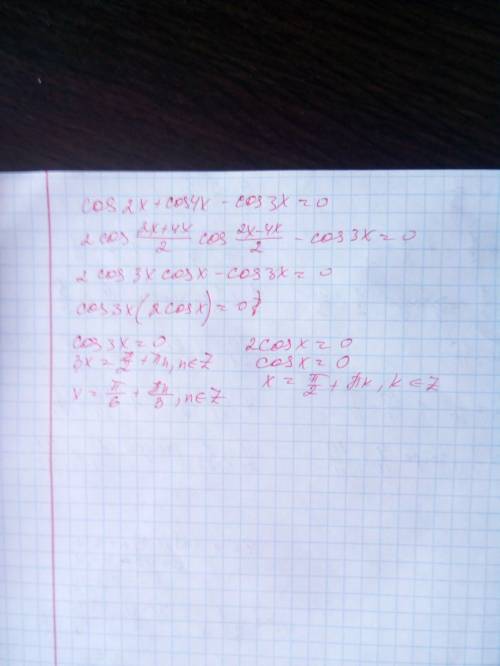 cos 2x + cos 4x - cos 3x = 0
2 cos (2x+4x)/2 cos (2x-4x)/2 - cos 3x = 0
2 cos 3x cos x - cos 3x = 0
cos 3x (2 cos x) = 0
cos 3x = 0 2 cos x = 0
3x = π/2 + πn, n ∈ Z cos x = 0
x = π/6 + πn/3, n ∈ Z x = π/2 + πk, k ∈ Z